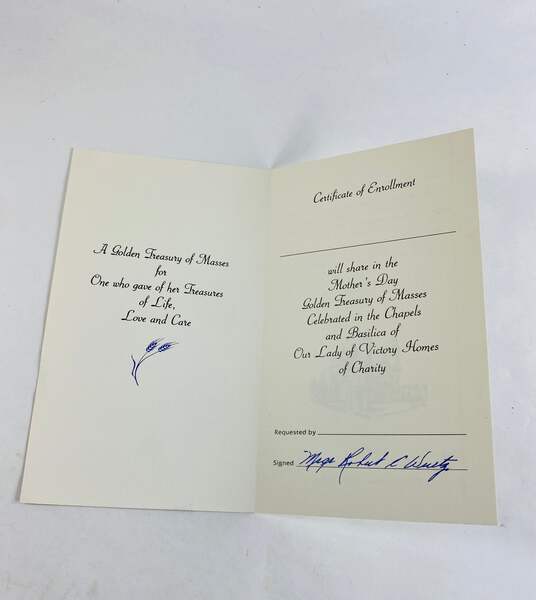 A Golden Treasury of Masses
for
One who gave of her Treasures
of Life,
Love and Care
Certificate of Enrollment
will share in the
Mother's Day
Golden Treasury of Masses
Celebrated in the Chapels
and Basilica of
Our Lady of Victory Homes
of Charity
Requested by
Signed Msgr Robert C Wurtz